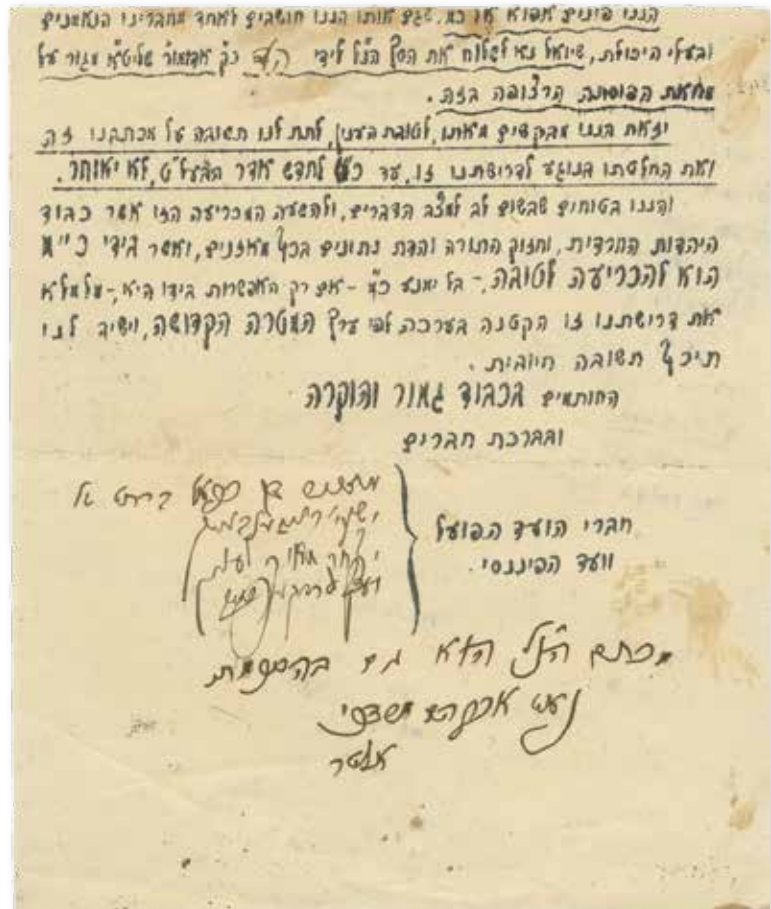 הננו פונים אפוא אל כ״מ, שגם אותו הננו חושבים לאחד מחברינו הנאמנים
ובעלי היכולת, שיואל נא לשלוח את הסך הנ״ל לידי כ״ק אדמו״ר שליט״א מגור על
המחאת הפוסטה הרצופה בזה.
וזאת הננו מבקשים מאתו, לטובת הענין, לתת לנו תשובה על מכתבנו זה
ואת החלטתו בנוגע לדרישתנו זו, עד לחדש אדר הבעל״ט, לא יאוחר.
והננו בטוחים שבשום לב למצב הדברים, ולהשעה המכריעה הזו אשר כבוד
היהדות החרדית, וחזוק התורה והדת נתונים בכף מאזנים, ואשר בידי כ״מ
הוא להכריעה לטובה, - בל ימנע כ״מ - אם רק האפשרות בידו היא, - מלמלא
את דרישתנו זו הקטנה בערכה לפי ערך המטרה הקדושה, וישיב לנו
תיכף תשובה חיובית.
החותמים בכבוד גמור והוקרה
ובברכת חברים
חברי הועד הפועל
וועד הפיננסי
מכתב הנ״ל הוא גם בהסכמת
אלטר